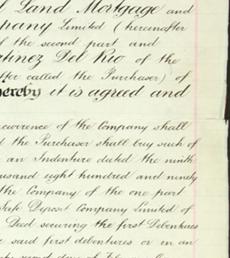 Land Mortgage and
Company Limited (hereinafter
of the second part and
Martinez Del Rio of the
after called the Purchaser) of
hereby it is agreed and
concurrence of the Company shall
the Purchaser shall buy such of
an Indenture dated the ninth
thousand eight hundred and ninety
the Company of the one part
Safe Deposit Company Limited of
Deed securing the first Debentures
said first debentures or in an